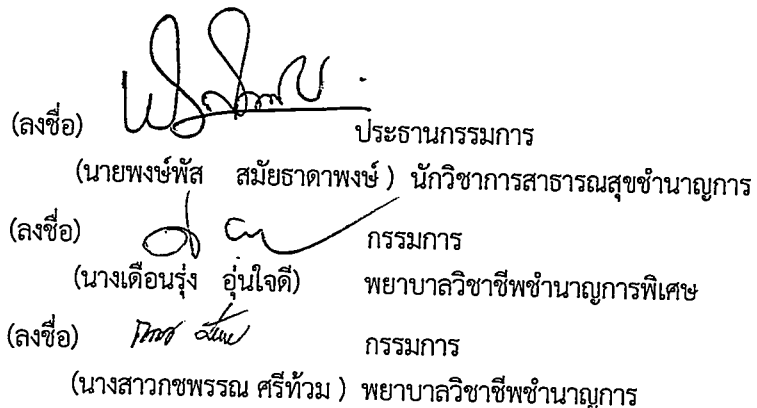 (ลงชื่อ) ประธานกรรมการ
(นายพงษ์พัส สมัยธาดาพงษ์ ) นักวิชาการสาธารณสุขชำนาญการ
(ลงชื่อ) กรรมการ
(นางเดือนรุ่ง อุ่นใจดี) พยาบาลวิชาชีพชำนาญการพิเศษ
(ลงชื่อ) กรรมการ
(นางสาวกชพรรณ ศรีท้วม ) พยาบาลวิชาชีพชำนาญการ